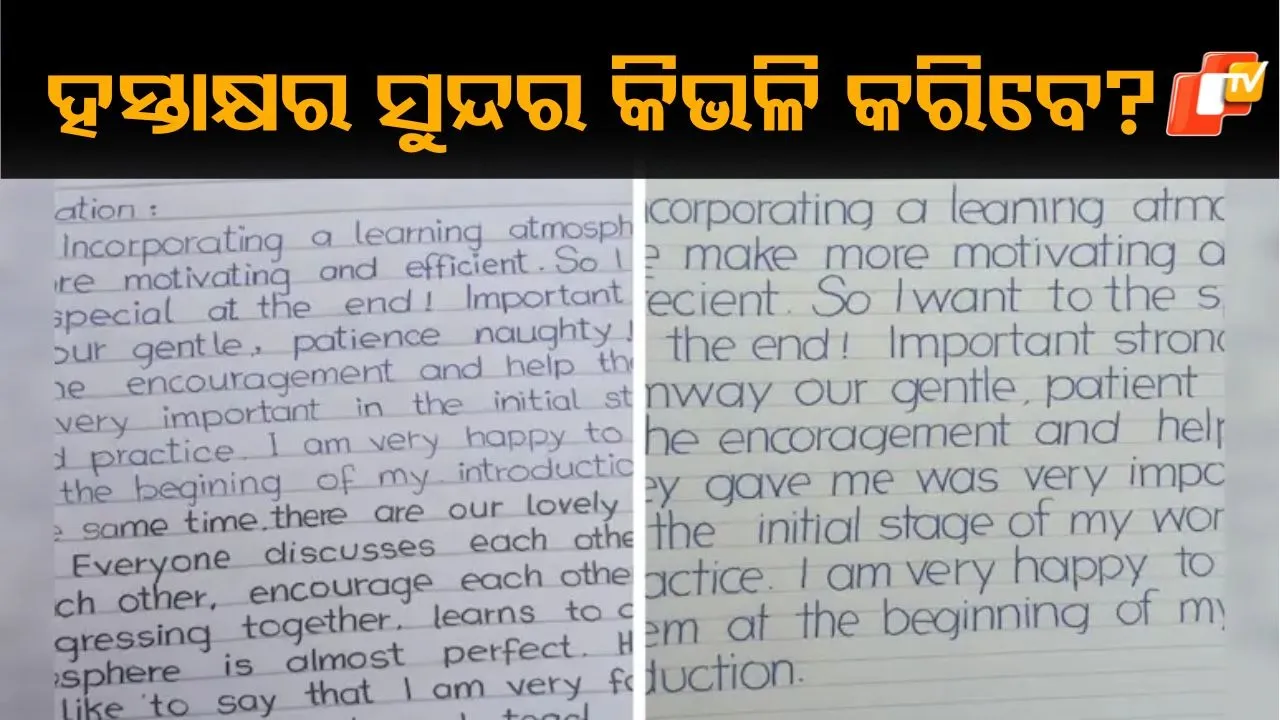 ହସ୍ତାକ୍ଷର ସୁନ୍ଦର କିଭଳି କରିବେ?
TV
ation :
Incorporating a learning atmosph
re motivating and efficient. So I
special at the end! Important
our gentle, patience naughty!
he encouragement and help the
very important in the initial st
d practice. I am very happy to
the begining of my introductio
e same time.there are our lovely
Everyone discusses each othe
ch other, encourage each othe
gressing together, learns to
osphere is almost perfect. H
like to say that I am very fo
corporating a leaning atmo
e make more motivating a
ecient. So I want to the s
the end! Important strong
nway our gentle, patient
he encoragement and help
ey gave me was very impo
the initial stage of my wor
actice. I am very happy to
em at the beginning of my
duction.